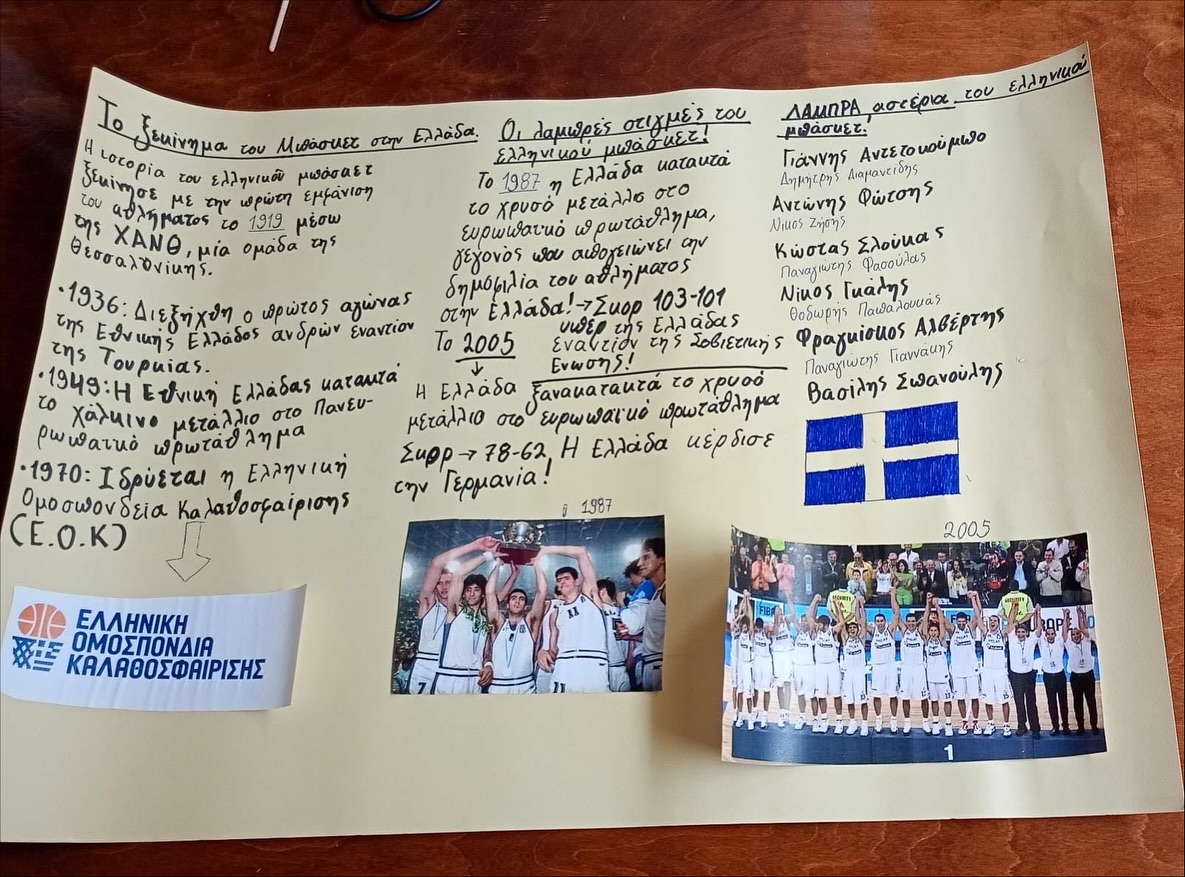 Το ξεκίνημα του Μπάσκετ στην Ελλάδα.
Η ιστορία του ελληνικού μπάσκετ
ξεκίνησε με την πρώτη εμφάνιση
του αθλήματος το 1919 μέσω
της ΧΑΝΘ, μία ομάδα της
Θεσσαλονίκης.
•1936: Διεξήχθη ο πρώτος αγώνας
της Εθνικής Ελλάδος ανδρών εναντίον
της Τουρκίας.
•1949: Η Εθνική Ελλάδας κατακτά
το χάλκινο μετάλλιο στο Πανευ-
ρωπαϊκό πρωτάθλημα
•1970: Ιδρύεται η Ελληνική
Ομοσπονδεία Καλαθοσφαίρισης
(Ε.Ο.Κ)
ΕΛΛΗΝΙΚΗ
ΟΜΟΣΠΟΝΔΙΑ
ΚΑΛΑΘΟΣΦΑΙΡΙΣΗΣ
Οι λαμπρές στιγμές του
ελληνικού μπάσκετ!
Το 1987 η Ελλάδα κατακτά
το χρυσό μετάλλιο στο
ευρωπαϊκό πρωτάθλημα,
γεγονός που απογειώνει την
δημοφιλία του αθλήματος
στην Ελλάδα!→Σκορ 103-101
υπέρ της Ελλάδας
εναντίον της Σοβιετικής
Ενωσης!
Το 2005
Η Ελλάδα ξανακατακτά το χρυσό
μετάλλιο στο ευρωπαϊκό πρωτάθλημα
Σκορ → 78-62 Η Ελλάδα κέρδισε
την Γερμανία!
1987
7
11
11
ΛΑΜΠΡΑ αστέρια του ελληνικού
μπάσκετ!
Γιάννης Αντετοκούμπο
Δημήτρης Διαμαντίδης
Αντώνης Φώτσης
Νίκος Ζήσης
Κώστας Σλούκας
Παναγιώτης Φασούλας
Νίκος Γκάλης
Θοδωρής Παπαλουκάς
Φραγκίσκος Αλβέρτης
Παναγιώτης Γιαννάκης
Βασίλης Σπανούλης
2005
SECURITY
SECURITY
FIBA
1